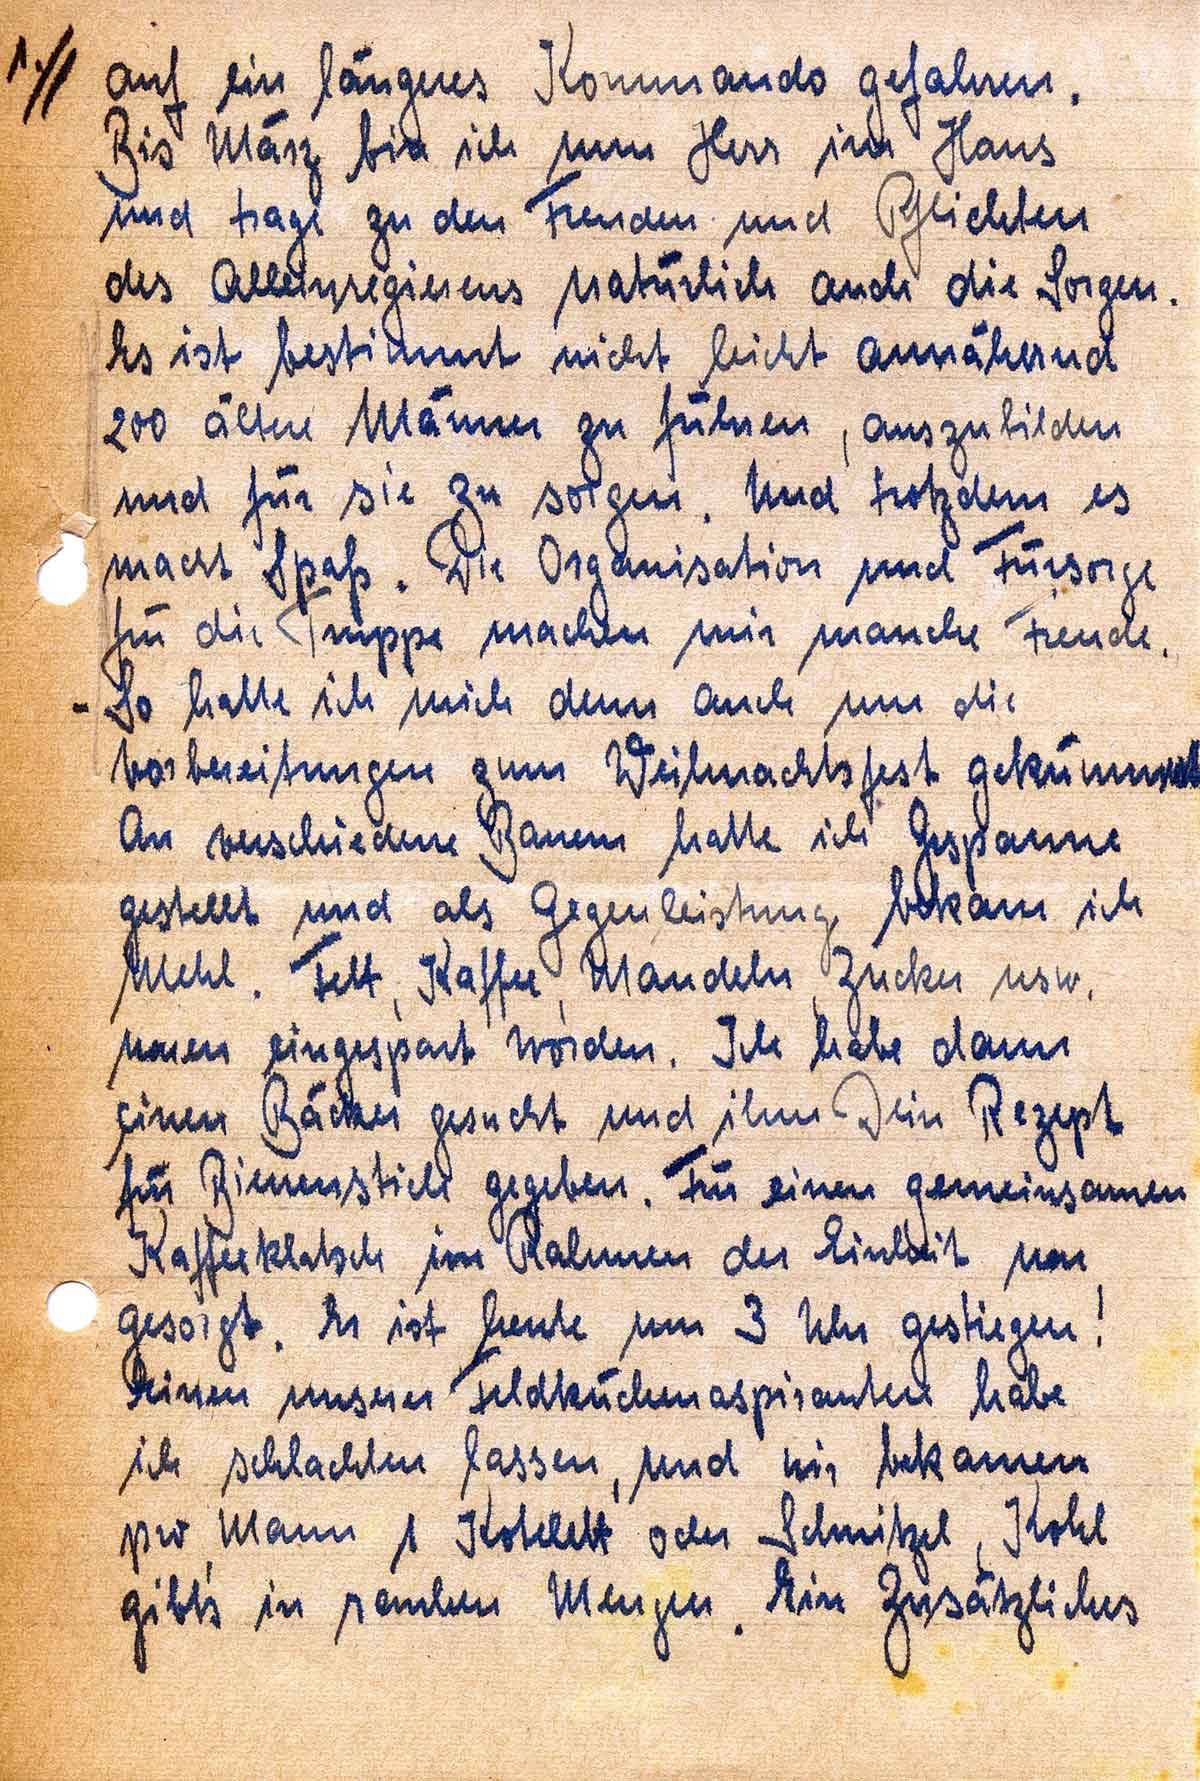 1.//
auf ein längeres Kommando gefahren.
Bis März bin ich nun Herr im Haus
und trage zu den Freuden und Pflichten
des Alleinregierens natürlich auch die Sorgen.
Es ist bestimmt nicht leicht annähernd
200 ältere Männer zu führen, auszubilden
und für sie zu sorgen. Und trotzdem es
macht Spaß. Die Organisation und Fürsorge
für die Truppe machen mir manche Freude.
- So hatte ich mich denn auch um die
Vorbereitungen zum Weihnachtsfest gekümmert
An verschiedene Bauern hatte ich Gespanne
gestellt und als Gegenleistung bekam ich
Mehl. Fett, Kaffee, Mandeln, Zucker usw.
waren eingespart worden. Ich habe dann
einen Bäcker gesucht und ihm Dein Rezept
für Bienenstich gegeben. Für einen gemeinsamen
Kaffeeklatsch im Rahmen der Einheit war
gesorgt. Er ist heute um 3 Uhr gestiegen!
Einen unserer Feldküchenaspiranten habe
ich schlachten lassen, und wir bekamen
pro Mann 1 Kotelett oder Schnitzel, Kohl
gibt's in rauhen Mengen. Ein Zusätzliches